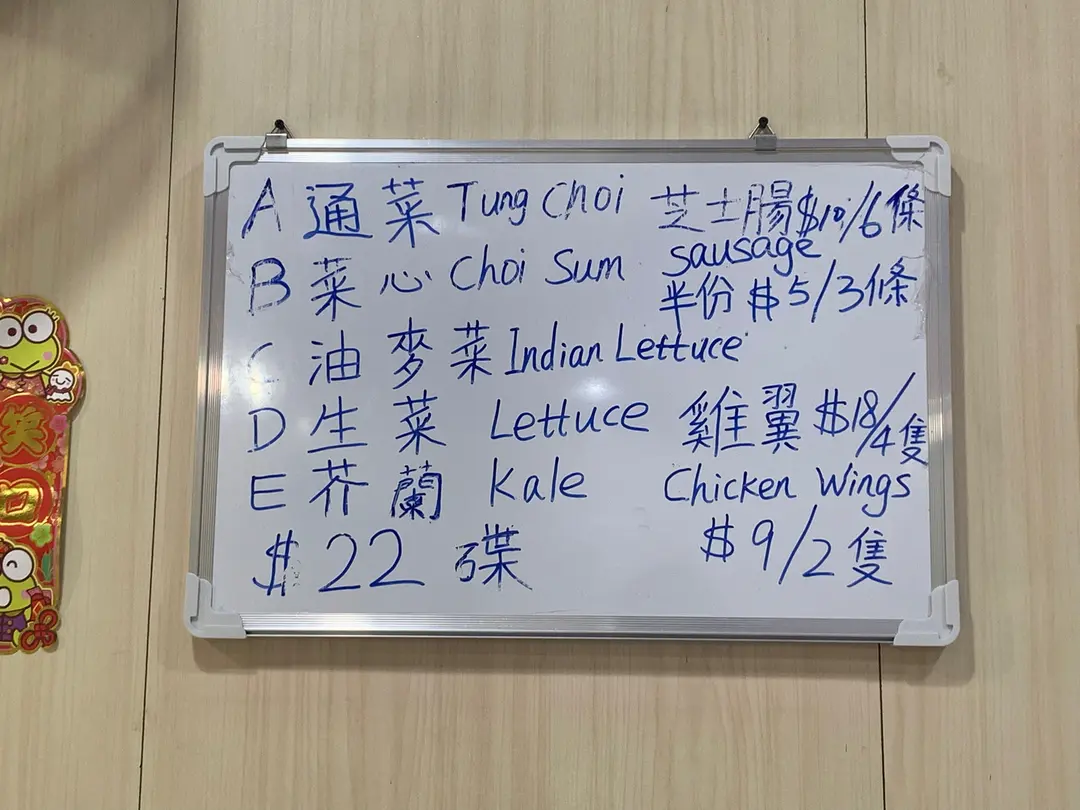 A 通菜 Tung Choi
B 菜心 Choi Sum
C 油麥菜 Indian Lettuce
D 生菜 Lettuce
E 芥蘭 Kale
$22 碟
芝士腸$10/6條
sausage
半份 $5/3條
雞翼 $18/4隻
Chicken Wings
$9/2隻
笑
口